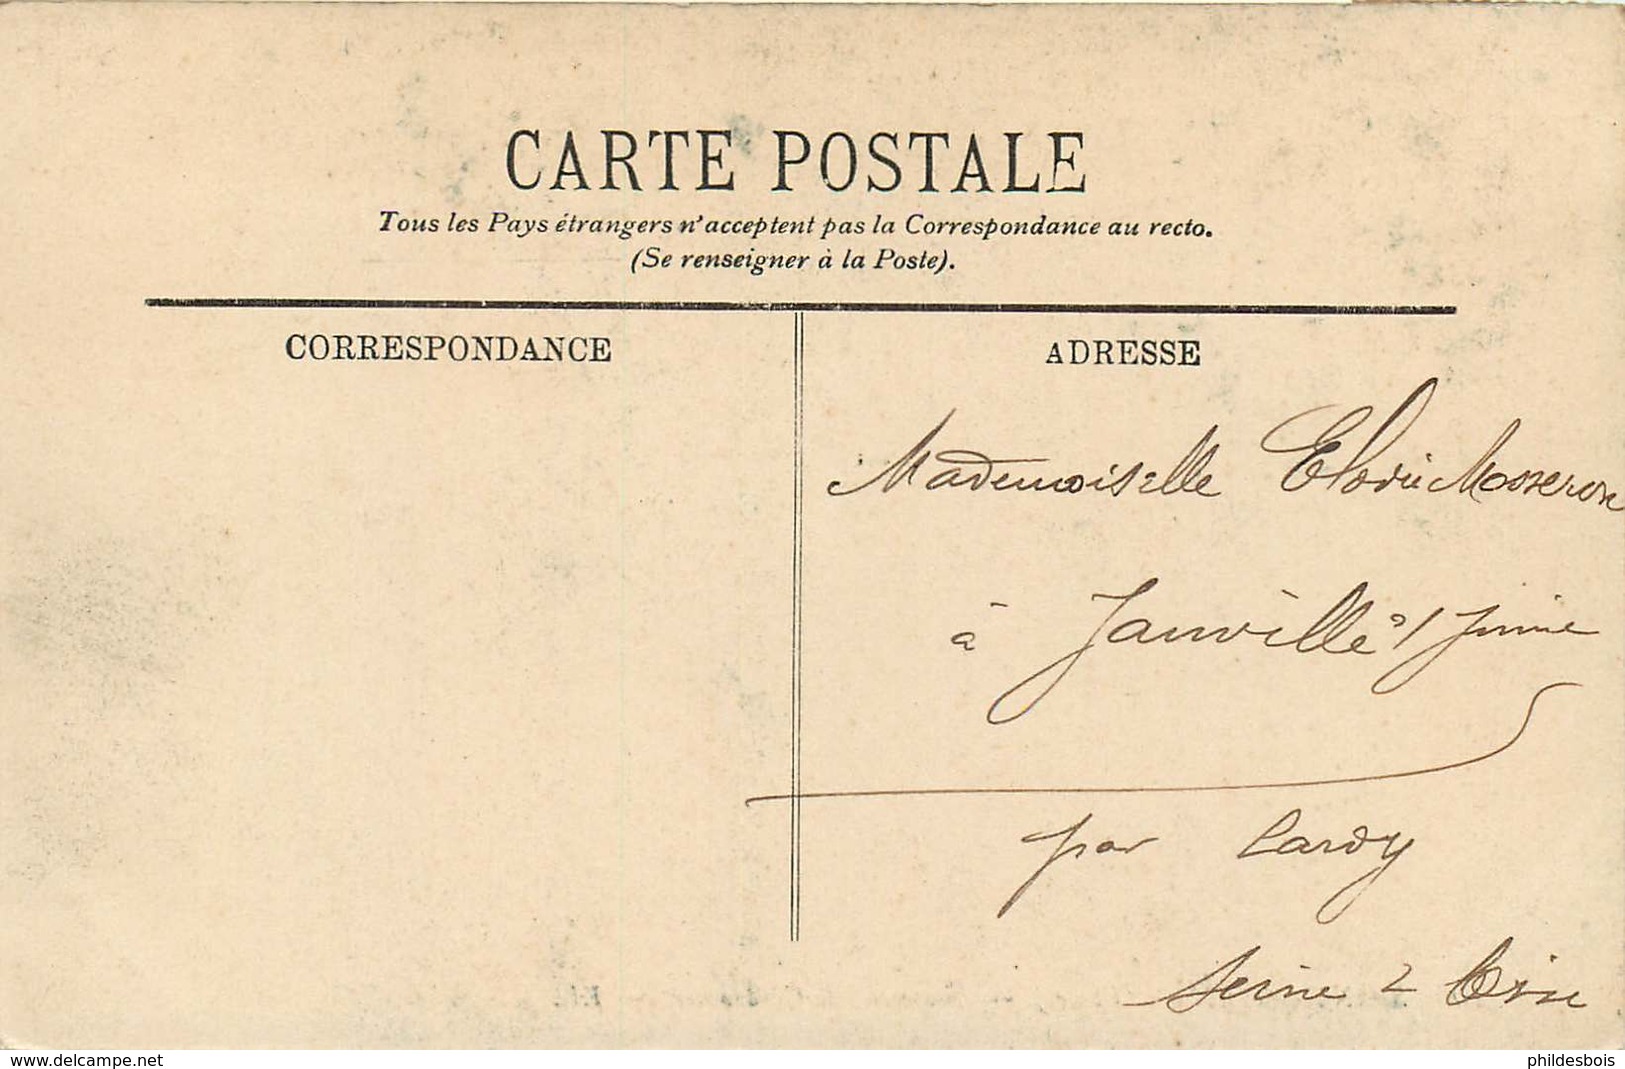 CARTE POSTALE
Tous les Pays étrangers n'acceptent pas la Correspondance au recto.
(Se renseigner à la Poste).
CORRESPONDANCE
ADRESSE
Mademoiselle Elodie
à Janville s/ Juine
par Lardy
Seine & Oise
www.delcampe.net
phildesbois